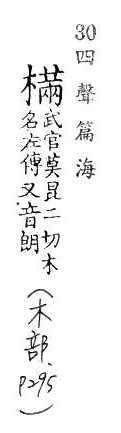 30四聲篇海
樠武官莫昆二切木
名左傳又音朗
(木部、P295)